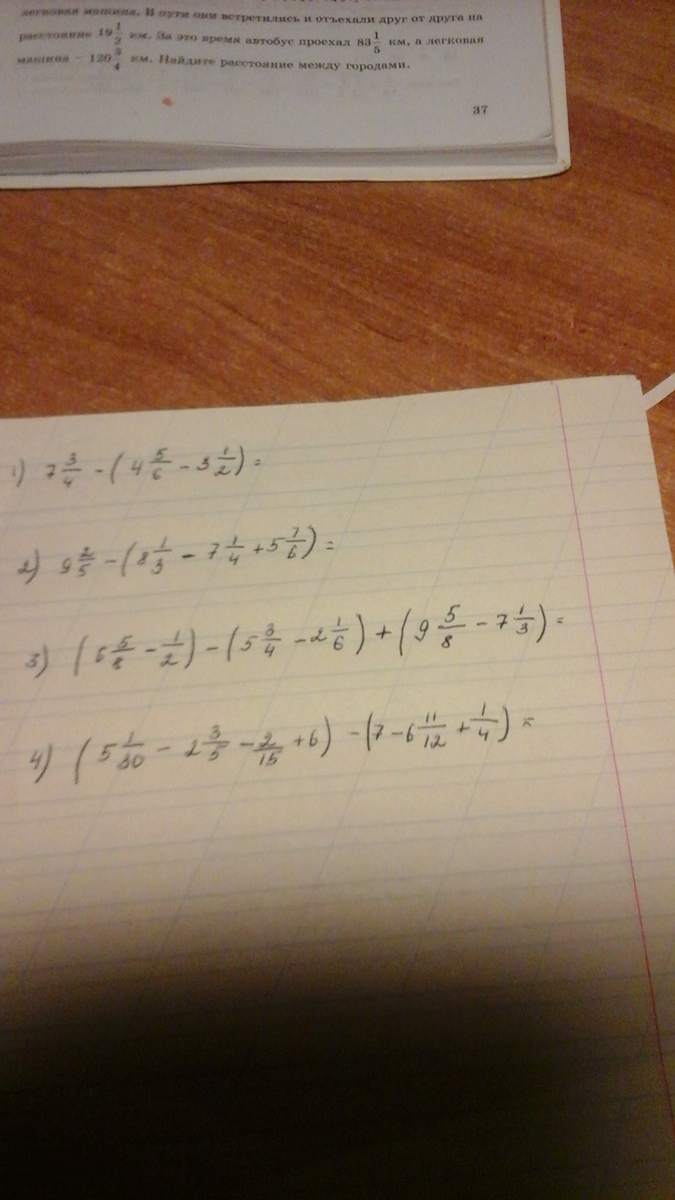 легковая машина. В пути они встретились и отъехали друг от друга на
расстояние 19 1/2 км. За это время автобус проехал 83 1/5 км, а легковая
машина – 120 3/4 км. Найдите расстояние между городами.
37
1) 7 3/4 - (4 5/6 - 3 1/2) =
2) 9 2/5 - (8 1/3 - 7 1/4 + 5 7/6) =
3) (6 5/8 - 1/2) - (5 3/4 - 2 1/6) + (9 5/8 - 7 1/3) =
4) (5 1/30 - 2 3/5 - 2/15 + 6) - (7 - 6 11/12 + 1/4) =